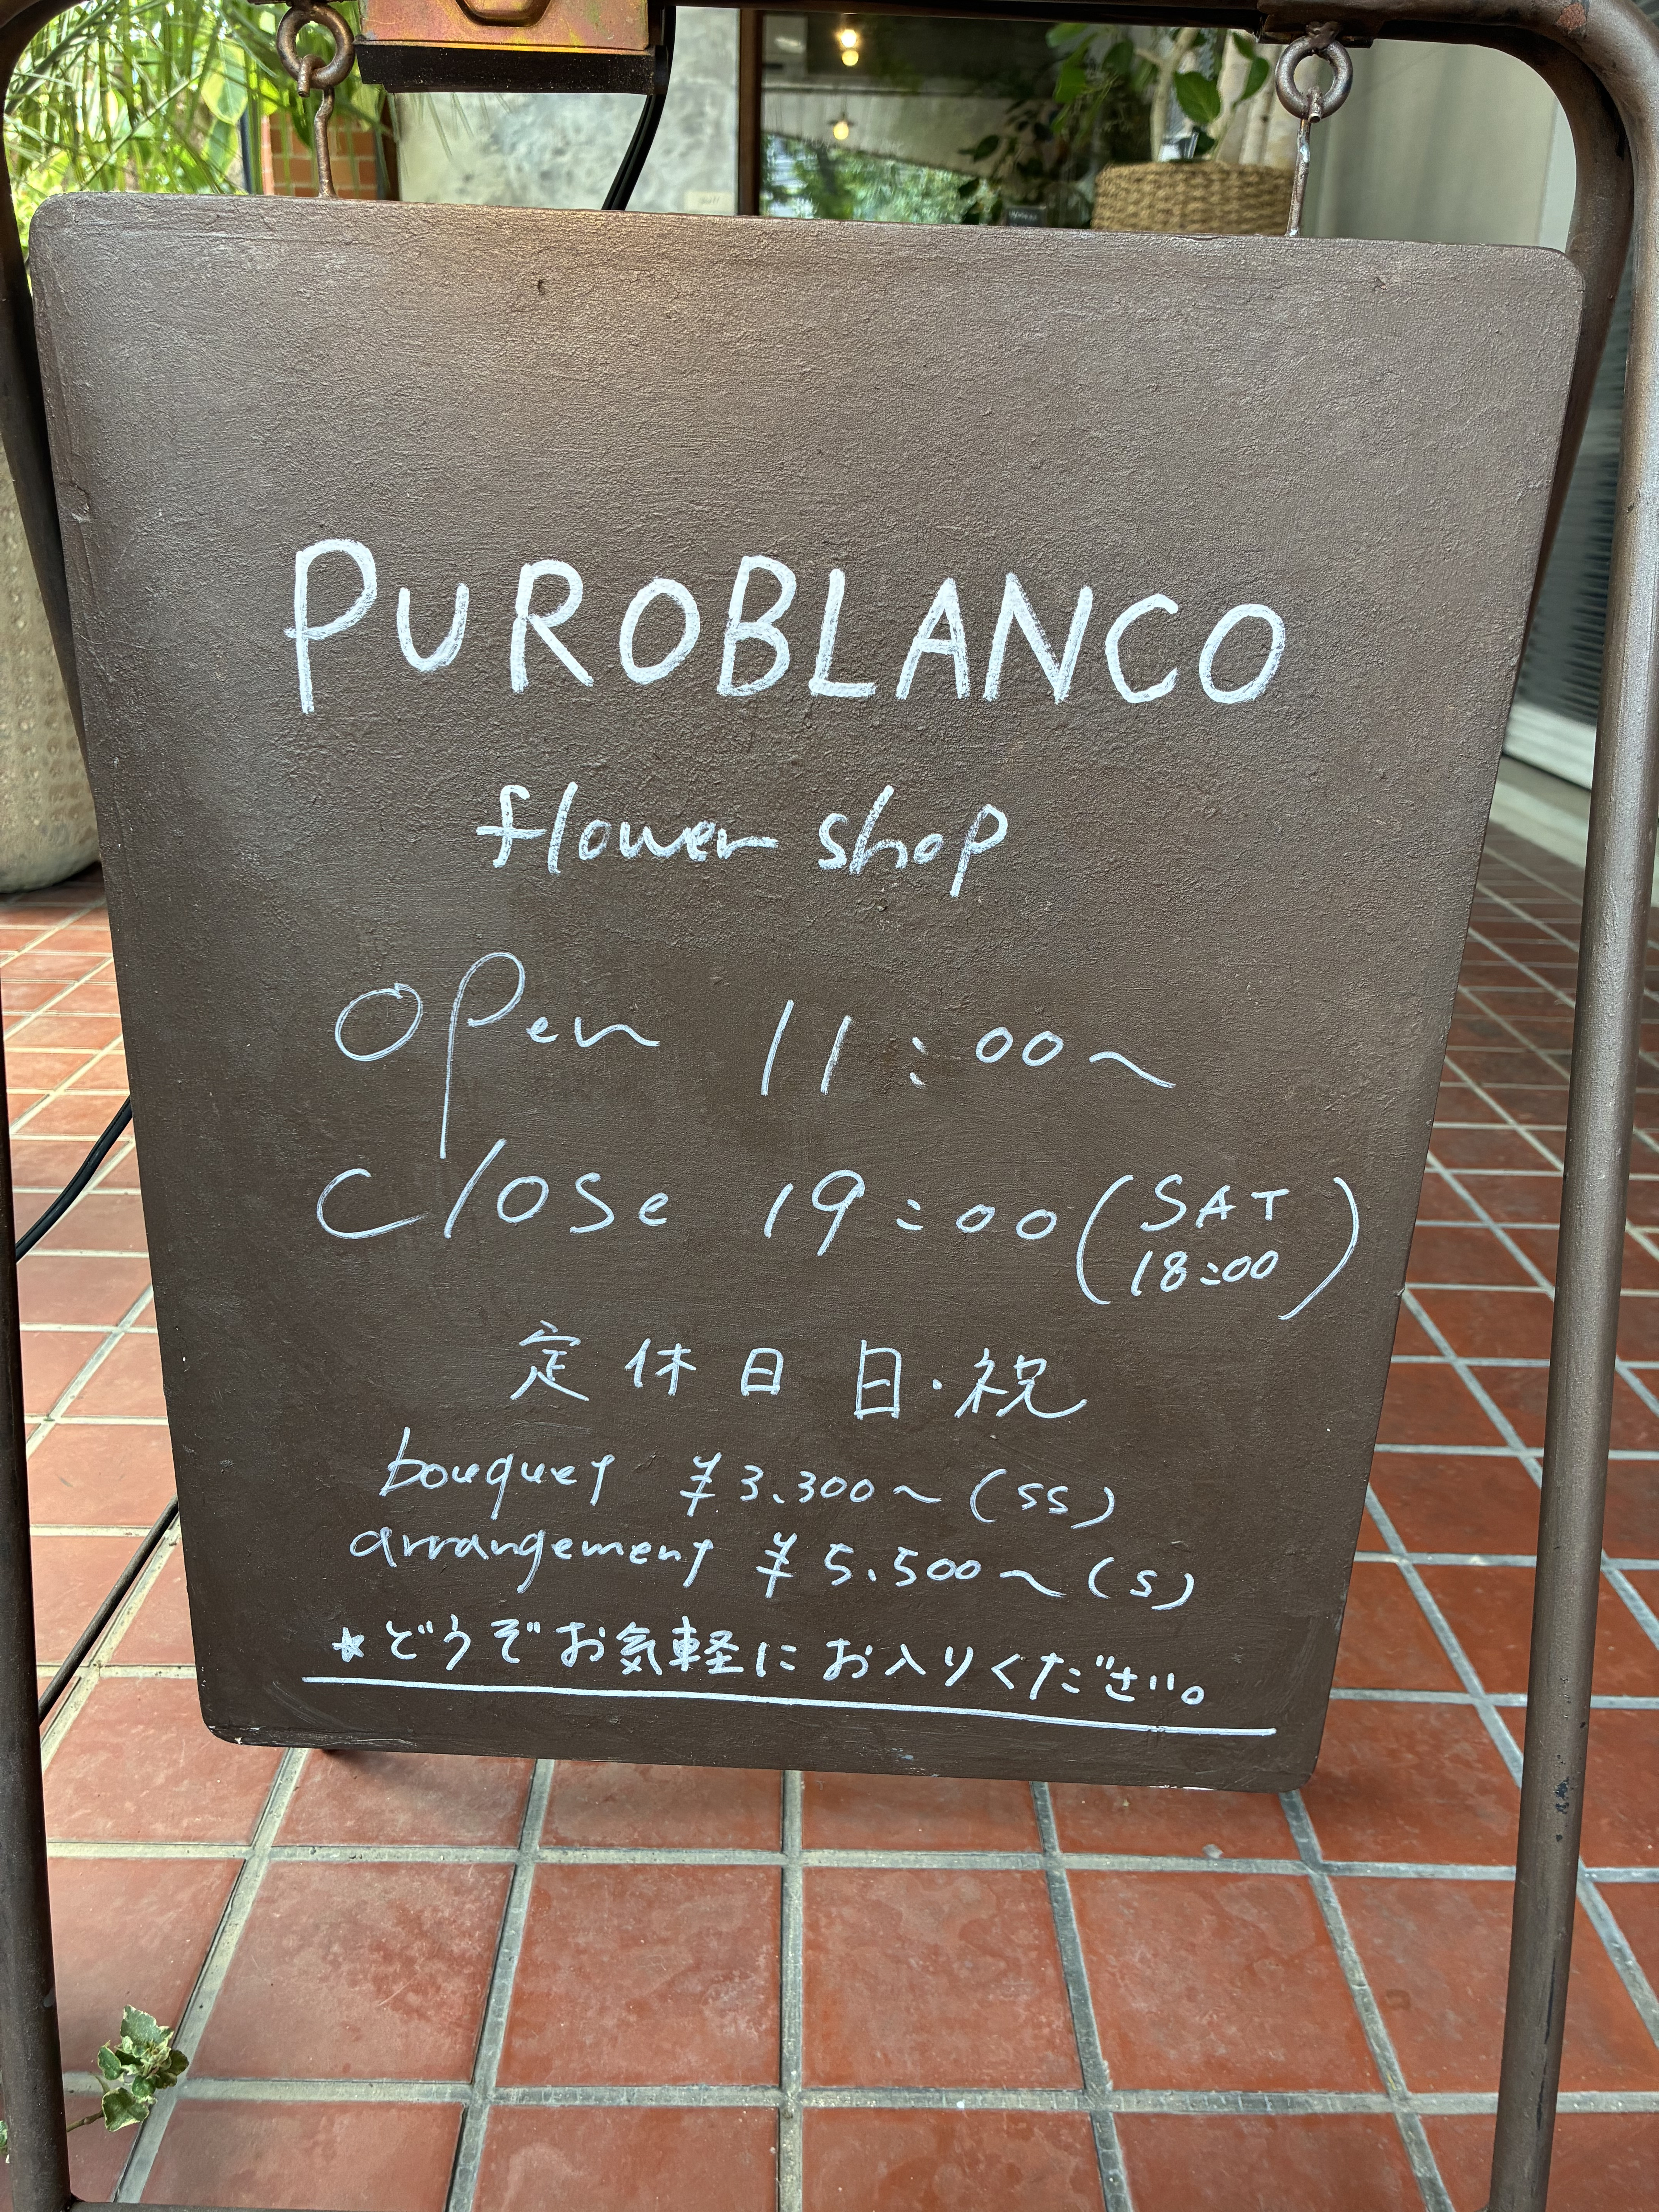 PUROBLANCO
flower shop
open 11:00~
close 19:00 (SAT 18:00)
定休日 日・祝
bouquet ¥3.300~ (SS)
arrangement ¥5.500~ (S)
★どうぞお気軽にお入りください。